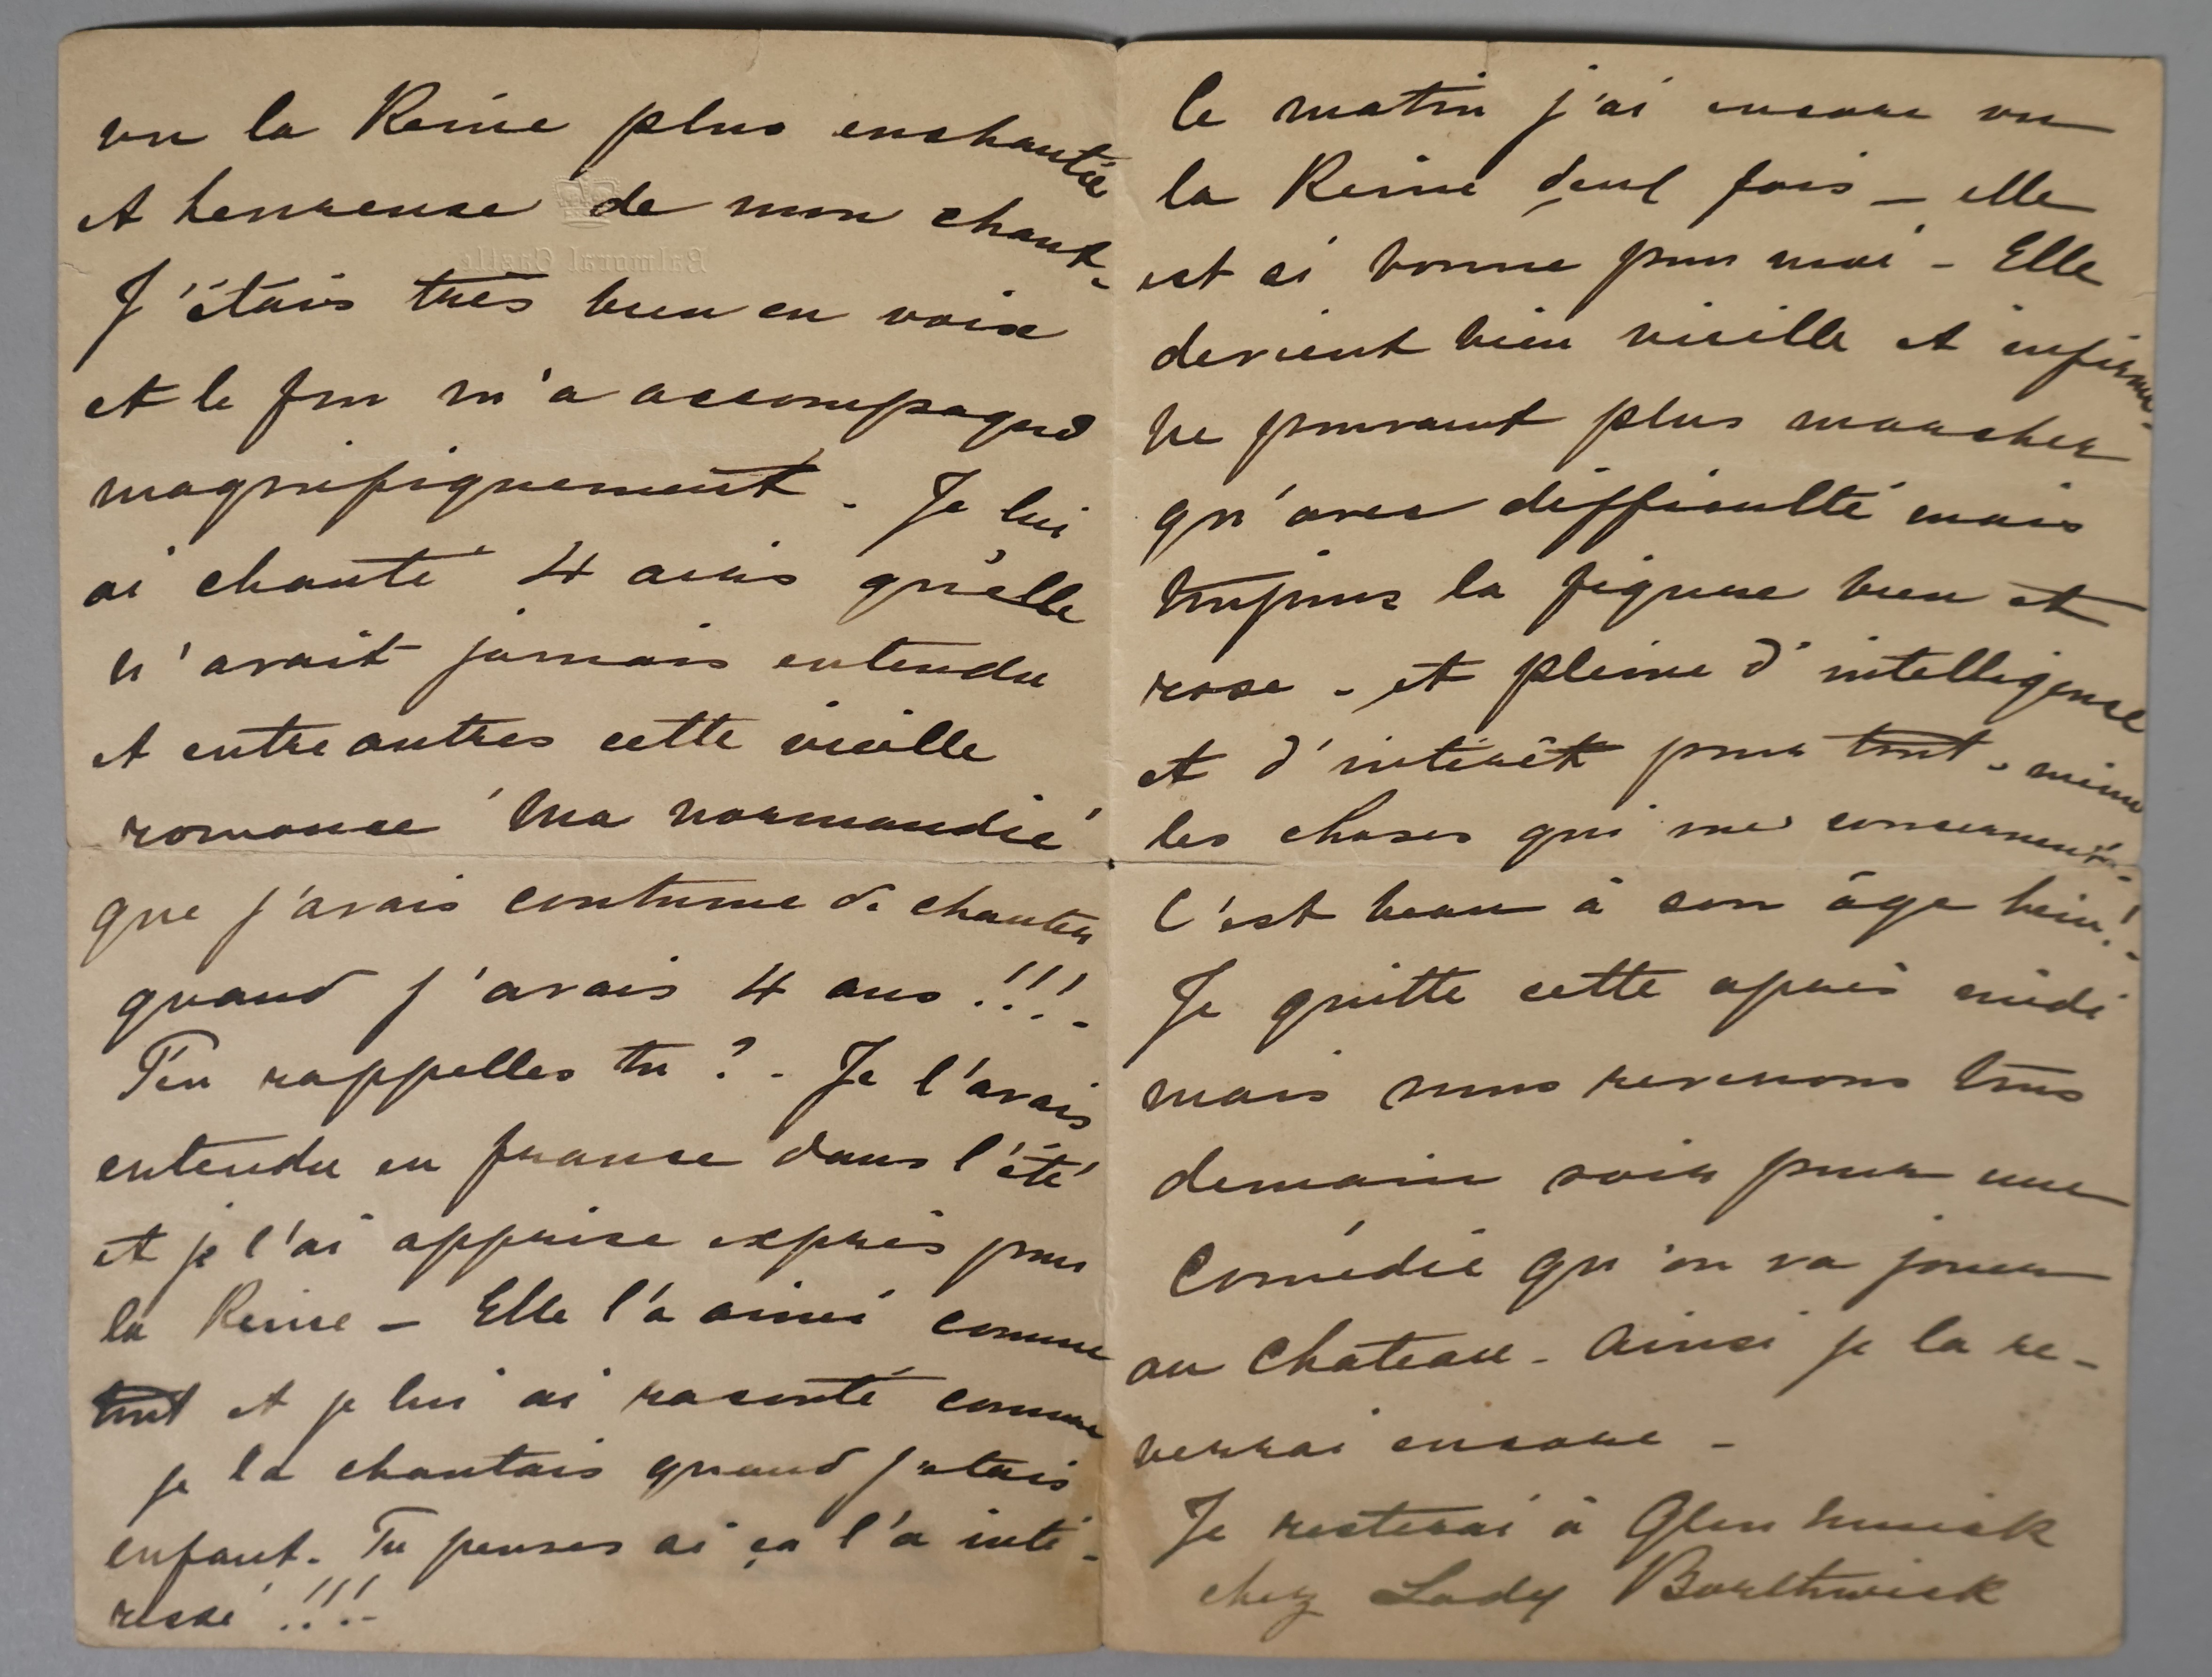 vu la Reine plus enchantée
et heureuse de mon chant -
Balmoral Castle
J'étais très bien en voix
et le m'a accompagné
magnifiquement - Je lui
ai chanté 4 airs qu'elle
n'avait jamais entendu
et entre autres cette vieille
romance "Ma normandie"
que j'avais coutume de chanter
quand j'avais 4 ans !!! -
T'en rappelles tu ? - Je l'avais
entendu en france dans l'été
et je l'ai apprise exprès pour
la Reine - Elle l'a aimé comme
tout et je lui ai raconté comme
je la chantais quand j'etais
enfant. Tu penses si ça l'a inté-
ressé !!! -
le matin j'ai encore vu
la Reine fois - elle
est si bonne pour moi - Elle
devient bien vieille et infirme -
ne pouvant plus marcher
qu'avec difficulté mais
toujours la figure bien et
rose - et pleine d'intelligence
et d'intérêt pour tout - même
les choses qui me concernent -
C'est beau à son âge hein! -
Je quitte cette après midi
mais nous revenons tous
demain soir pour une
Comédie qu'on va jouer
au Chateau - Ainsi je la re-
verrai encore -
Je resterai à Glen Muick
chez Lady Borthwick